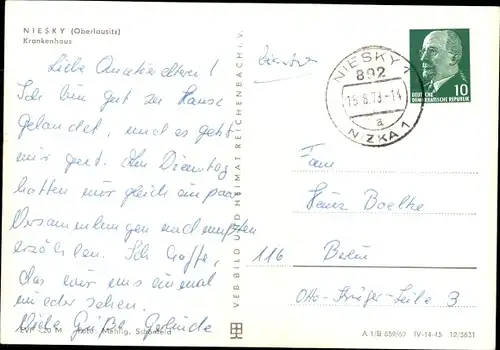 NIESKY (Oberlausitz)
Krankenhaus
Liebe Quartiereltern!
Ich bin gut zu Hause
gelandet, und es geht
mir gut. Am Dienstag
hatten wir gleich ein paar
Versammlungen und mußten
erzählen. Ich hoffe,
das wir uns einmal
wieder sehen.
Viele Grüße Gerlinde
EVP -,20 M Foto: Mehlig, Schönfeld
VEB BILD UND HEIMAT REICHENBACH i. V.
NIESKY 1
892
15.8.73-14
a
10
DEUTSCHE
DEMOKRATISCHE REPUBLIK
Fam
Heinz Boelke
116 Berlin
Otto-Krüger-Zeile 3
A 1/B 859/69 IV-14-45 12/3631